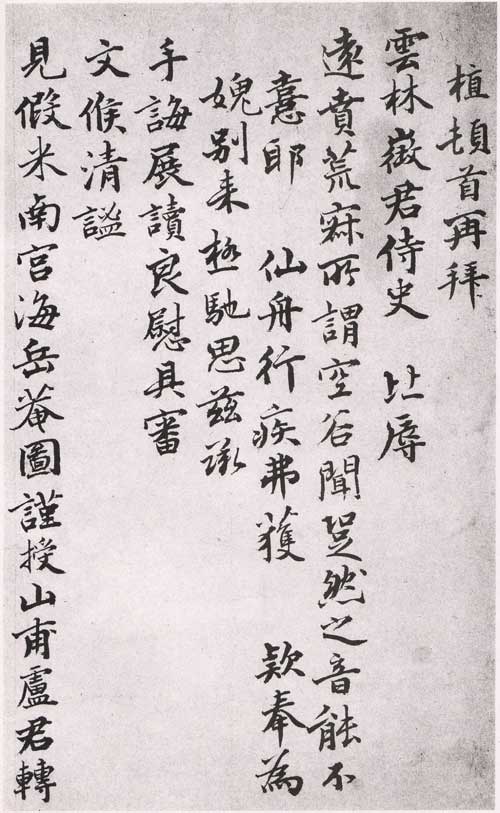 植頓首再拜
雲林徵君侍史 比辱
遠賁荒寂所謂空谷聞跫然之音能不
憙耶 仙舟行疾弗獲 款奉為
媿别来極馳思茲承
手誨展讀良慰具審
文候清謐
見假米南宮海岳菴圖謹授山甫盧君轉